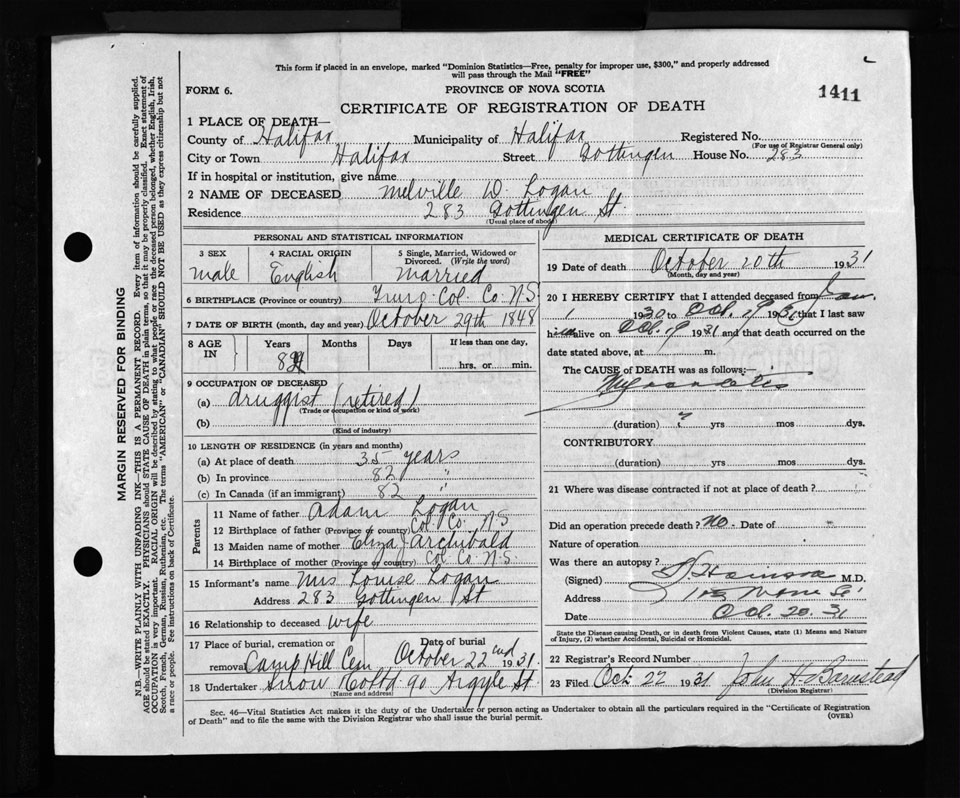 This form if placed in an envelope, marked "Dominion Statistics—Free, penalty for improper use, $300," and properly addressed
will pass through the Mail "FREE"
FORM 6.
PROVINCE OF NOVA SCOTIA
1411
CERTIFICATE OF REGISTRATION OF DEATH
1 PLACE OF DEATH—
County of Halifax Municipality of Halifax Registered No.
(For use of Registrar General only)
City or Town Halifax Street Gottingen House No. 283
If in hospital or institution, give name
2 NAME OF DECEASED Melville W. Logan
Residence 283 Gottingen St.
(Usual place of abode)
PERSONAL AND STATISTICAL INFORMATION
3 SEX 4 RACIAL ORIGIN 5 Single, Married, Widowed or
Divorced. (Write the word)
male English married
6 BIRTHPLACE (Province or country) Truro Col. Co. N.S
7 DATE OF BIRTH (month, day and year) October 29th 1848
8 AGE IN Years Months Days If less than one day,
82 hrs. or min.
9 OCCUPATION OF DECEASED
(a) druggist (retired)
(Trade or occupation or kind of work)
(b)
(Kind of industry)
10 LENGTH OF RESIDENCE (in years and months)
(a) At place of death 35 years
(b) In province 82 "
(c) In Canada (if an immigrant) 82 "
Parents
11 Name of father Adam Logan
12 Birthplace of father (Province or country) Col. Co. N.S
13 Maiden name of mother Eliza J Archibald
14 Birthplace of mother (Province or country) Col. Co. N.S.
15 Informant's name Mrs Louise Logan
Address 283 Gottingen St
16 Relationship to deceased wife
17 Place of burial, cremation or Date of burial
removal Camp Hill Cem October 22nd 1931.
18 Undertaker Snow Co Ltd 90 Argyle St.
(Name and address)
MEDICAL CERTIFICATE OF DEATH
19 Date of death October 20th 1931
(Month, day and year)
20 I HEREBY CERTIFY that I attended deceased from Jan.
1 1930 to Oct. 19 1931 that I last saw
him alive on Oct. 19 1931 and that death occurred on the
date stated above, at m.
The CAUSE OF DEATH was as follows:—
Myocarditis
(duration) ? yrs mos dys.
CONTRIBUTORY
(duration) yrs mos dys.
21 Where was disease contracted if not at place of death?
Did an operation precede death? No. Date of
Nature of operation
Was there an autopsy?
(Signed) M.D.
Address
Date Oct. 20. 31
State the Disease causing Death, or in death from Violent Causes, state (1) Means and Nature
of Injury, (2) whether Accidental, Suicidal or Homicidal.
22 Registrar's Record Number
23 Filed Oct 22 1931 John H. Barnstead
(Division Registrar)
Sec. 46—Vital Statistics Act makes it the duty of the Undertaker or person acting as Undertaker to obtain all the particulars required in the "Certificate of Registration
of Death" and to file the same with the Division Registrar who shall issue the burial permit.
(OVER)
MARGIN RESERVED FOR BINDING
N.B.—WRITE PLAINLY WITH UNFADING INK—THIS IS A PERMANENT RECORD. Every item of information should be carefully supplied.
AGE should be stated EXACTLY. PHYSICIANS should STATE CAUSE OF DEATH in plain terms, so that it may be properly classified. Exact statement of
OCCUPATION is very important. RACIAL ORIGIN will be described by stating to what people or race the deceased person belonged, whether English, Irish,
Scotch, French, German, Russian, Ruthenian, etc. The terms "AMERICAN" or "CANADIAN" SHOULD NOT BE USED as they express citizenship but not
a race or people. See instructions on back of Certificate.